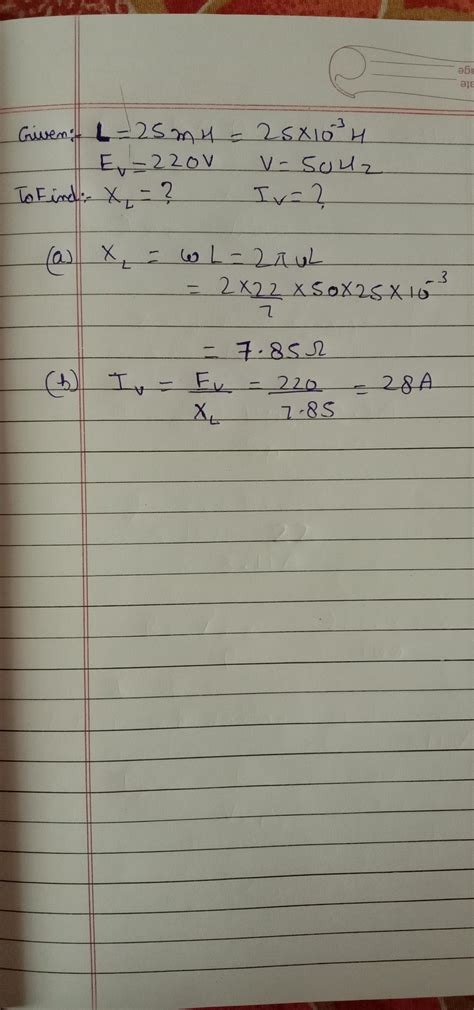 ate
age
Given:- L = 25mH = 25×10⁻³ H
Eᵥ = 220V V = 50Hz
To Find:- X_L = ? Iᵥ = ?
(a) X_L = ωL = 2πνL
= 2×22/7 ×50×25×10⁻³
= 7.85Ω
(b) Iᵥ = Eᵥ/X_L = 220/7.85 = 28A